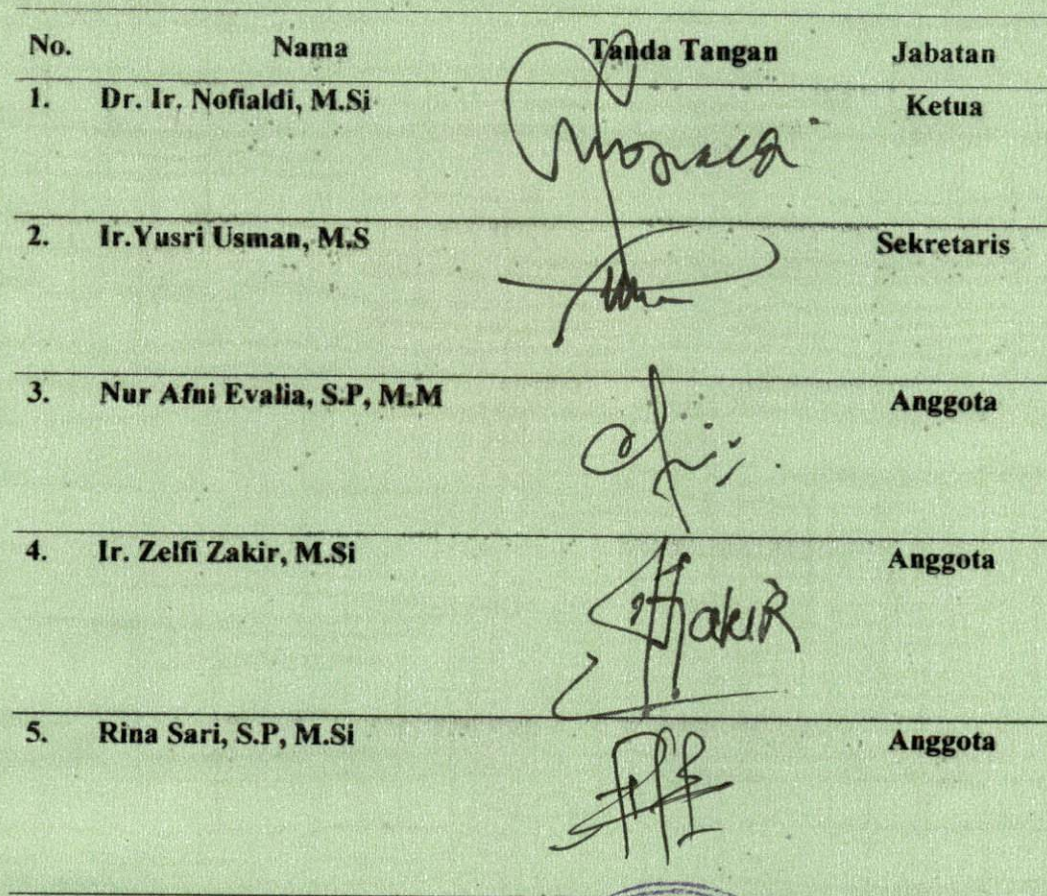 No. Nama Tanda Tangan Jabatan
1. Dr. Ir. Nofialdi, M.Si Ketua
2. Ir.Yusri Usman, M.S Sekretaris
3. Nur Afni Evalia, S.P, M.M Anggota
4. Ir. Zelfi Zakir, M.Si Anggota
5. Rina Sari, S.P, M.Si Anggota